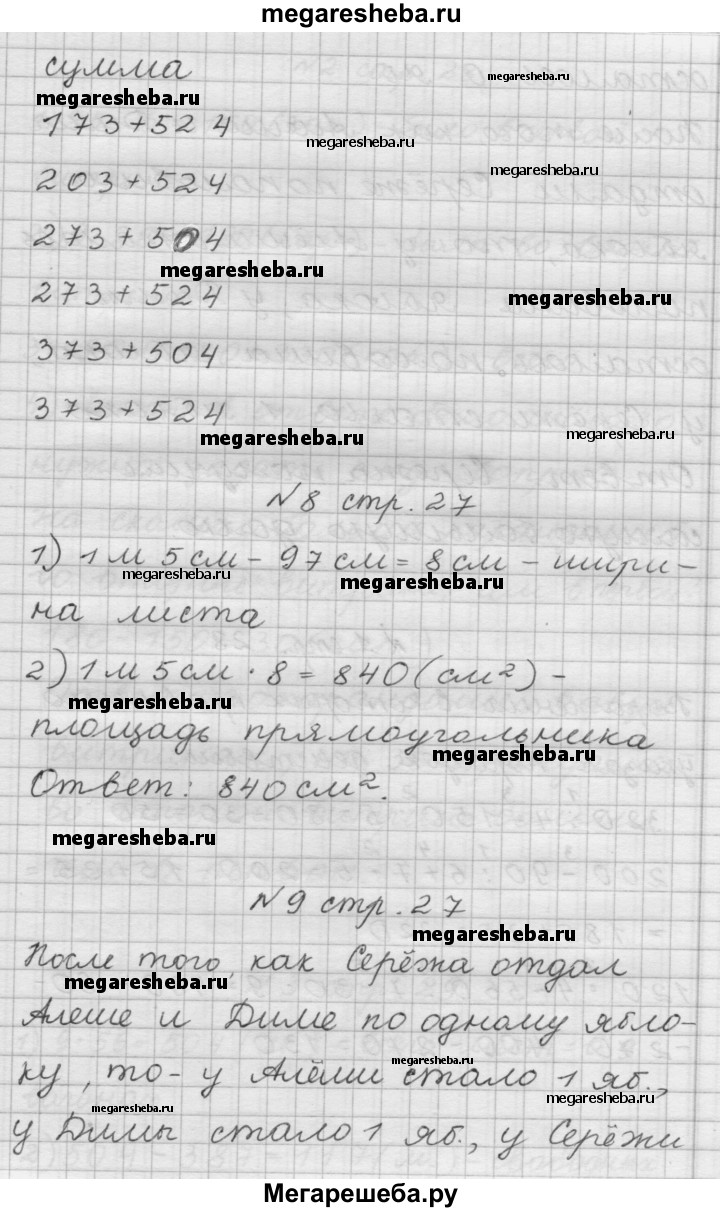 megaresheba.ru
сумма
megaresheba.ru
megaresheba.ru
173+524
megaresheba.ru
203+524
megaresheba.ru
273+504
megaresheba.ru
273+524
megaresheba.ru
373+504
373+524
megaresheba.ru
megaresheba.ru
№8 стр. 27
1) 1 м 5 см - 97 см = 8 см - шири-
megaresheba.ru
megaresheba.ru
на листа
2) 1 м 5 см · 8 = 840 (см²) -
megaresheba.ru
площадь прямоугольника
megaresheba.ru
Ответ: 840 см².
megaresheba.ru
№9 стр. 27
megaresheba.ru
После того, как Серёжа отдал
megaresheba.ru
Алеше и Диме по одному ябло-
ку, то - у Алёши стало 1 яб.,
megaresheba.ru
megaresheba.ru
у Димы стало 1 яб., у Серёжи
megaresheba.ru
Мегарешеба.ру